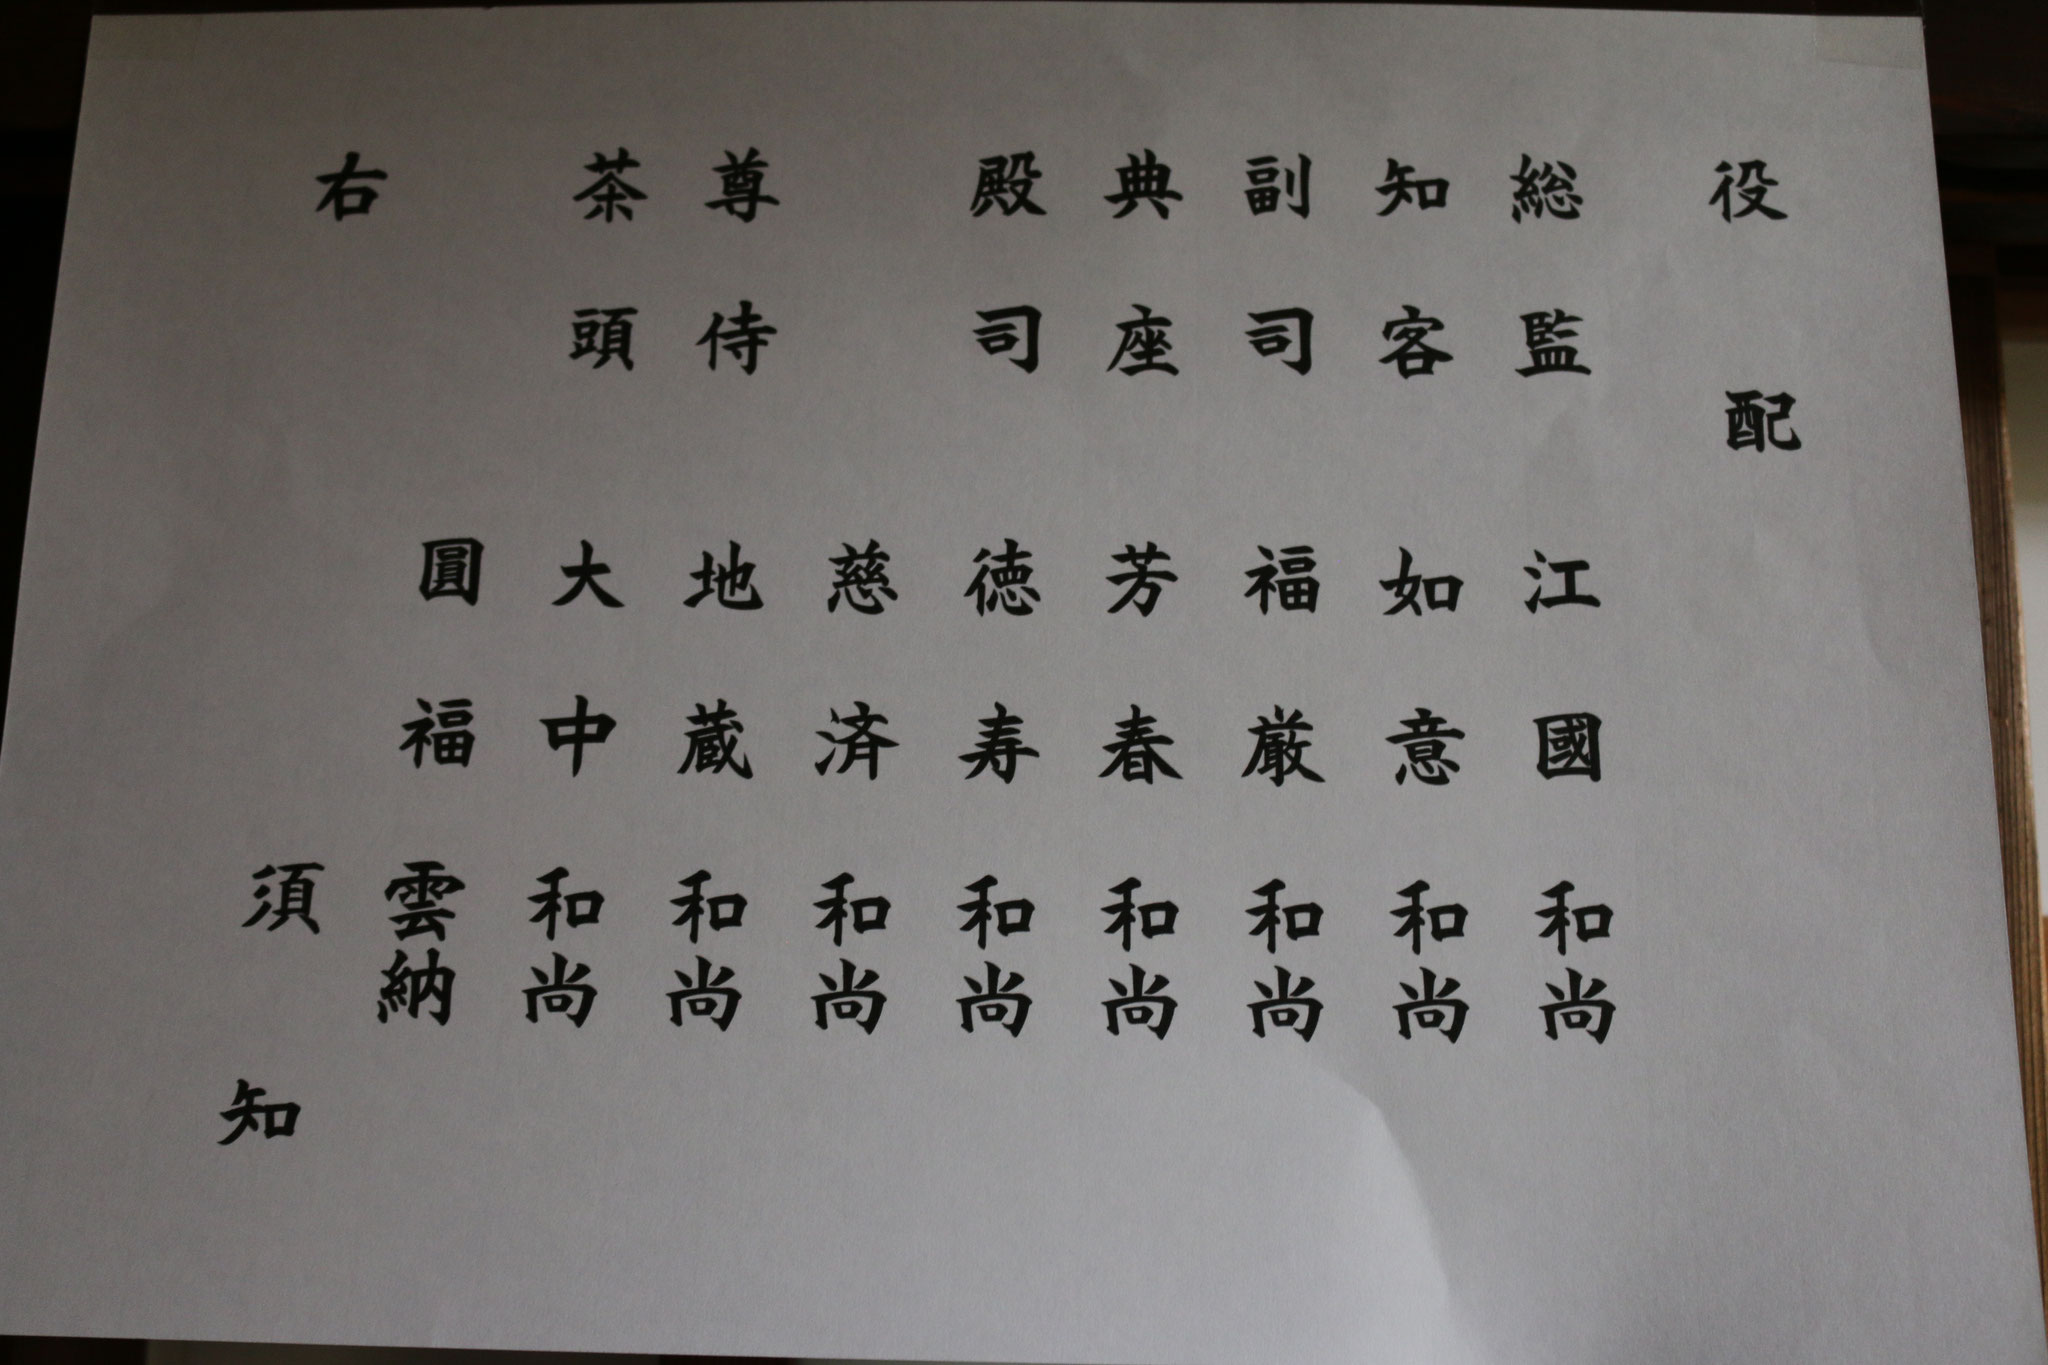 役配
総監 江國和尚
知客 如意和尚
副司 福厳和尚
典座 芳春和尚
殿司 徳寿和尚
慈済和尚
尊侍 地蔵和尚
茶頭 大中和尚
圓福雲納
右 須知